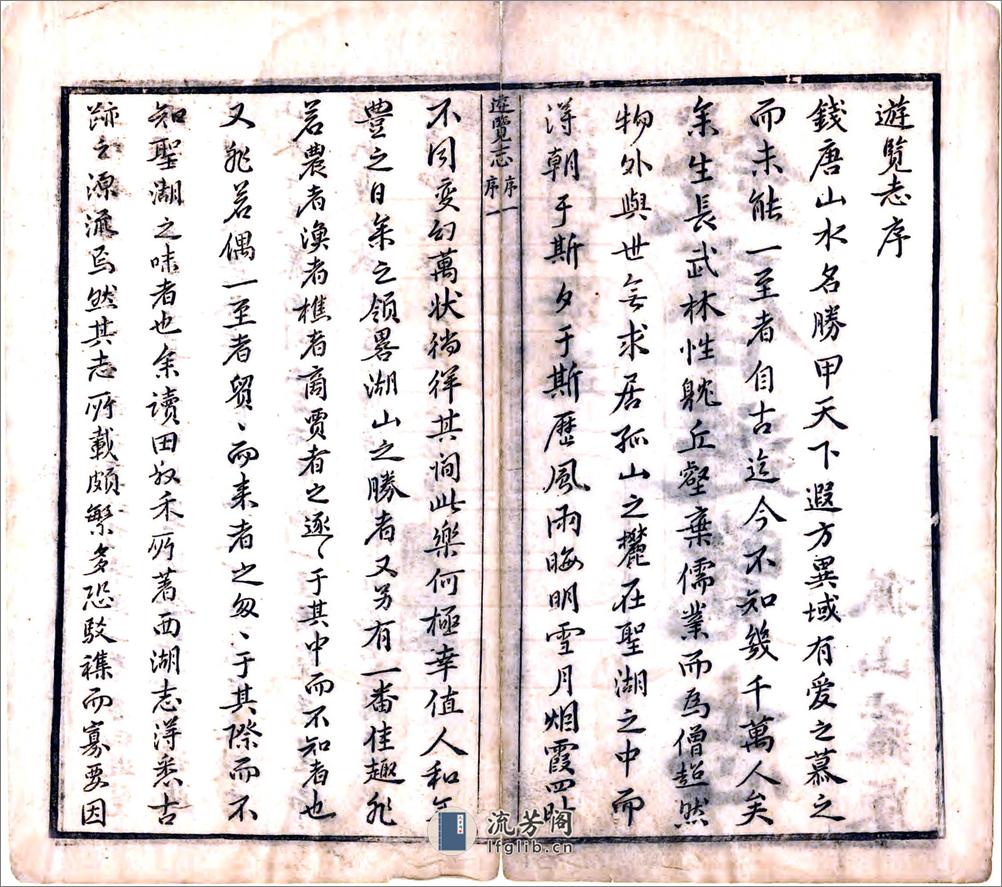 遊覽志序
錢唐山水名勝甲天下遐方異域有愛之慕之
而未能一至者自古迄今不知幾千萬人矣
余生長武林性躭丘壑棄儒業而為僧超然
物外與世無求居孤山之麓在聖湖之中而
淂朝于斯夕于斯歷風雨晦明雪月烟霞四時
遊覽志序
序一
不同变幻萬状徜徉其间此樂何極幸值人和年
豐之日余之領畧湖山之勝者又另有一番佳趣非
若農者漁者樵者商賈者之逐〻于其中而不知者也
又非若偶一至者貿〻而来者之匆〻于其際而不
知聖湖之味者也余讀田叔禾所著西湖志淂悉古
跡之源流焉然其志所載頗繁多恐駁襍而寡要因
流芳阁
lfglib.cn